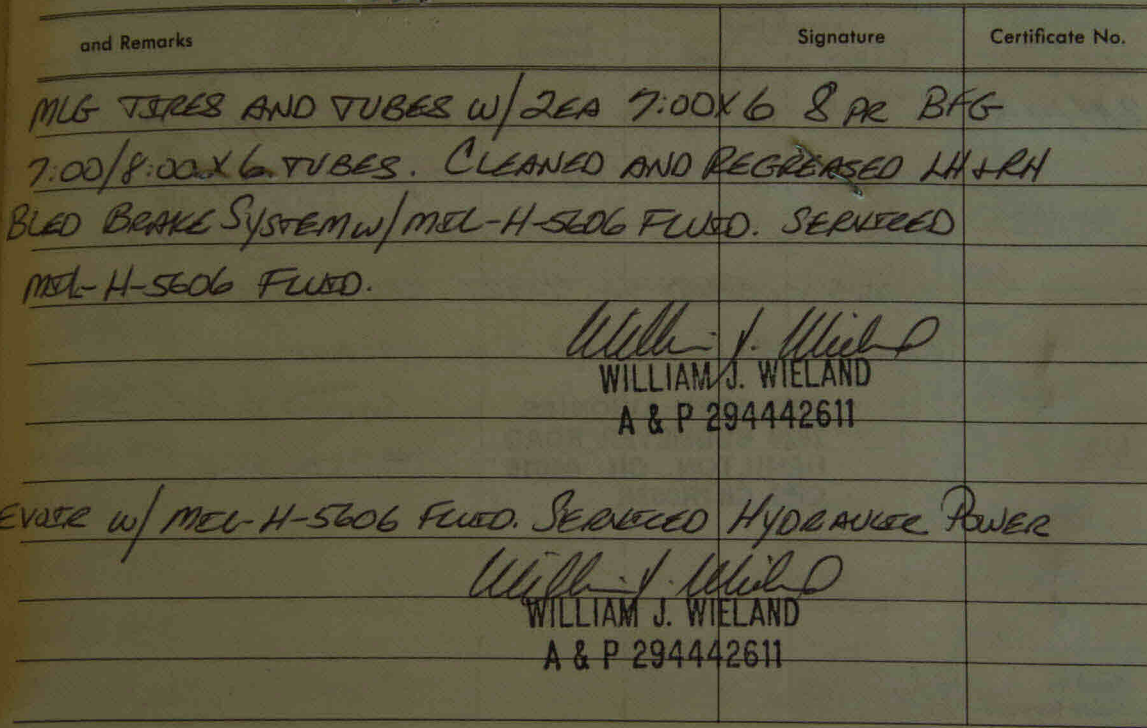 and Remarks Signature Certificate No.
MLG TIRES AND TUBES W/ 2EA 7:00X6 8 PR BFG
7:00/8:00X6 TUBES. CLEANED AND REGREASED LH+RH
BLED BRAKE SYSTEM W/ MIL-H-5606 FLUID. SERVICED
MIL-H-5606 FLUID.
William J. Wieland
WILLIAM J. WIELAND
A & P 294442611
EVOIR W/ MIL-H-5606 FLUID. SERVICED HYDRAULIC POWER
William J. Wieland
WILLIAM J. WIELAND
A & P 294442611